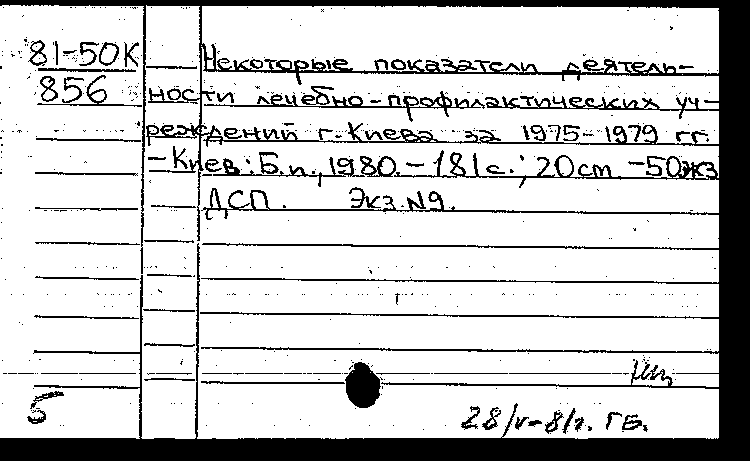 81-50К Некоторые показатели деятель-
856 ности лечебно-профилактических уч-
реждений г. Киева за 1975-1979 гг.
- Киев: Б.и., 1980. - 181с.; 20cm - 50экз
ДСП. Экз. №9.
5 28/V-81г. ГБ.